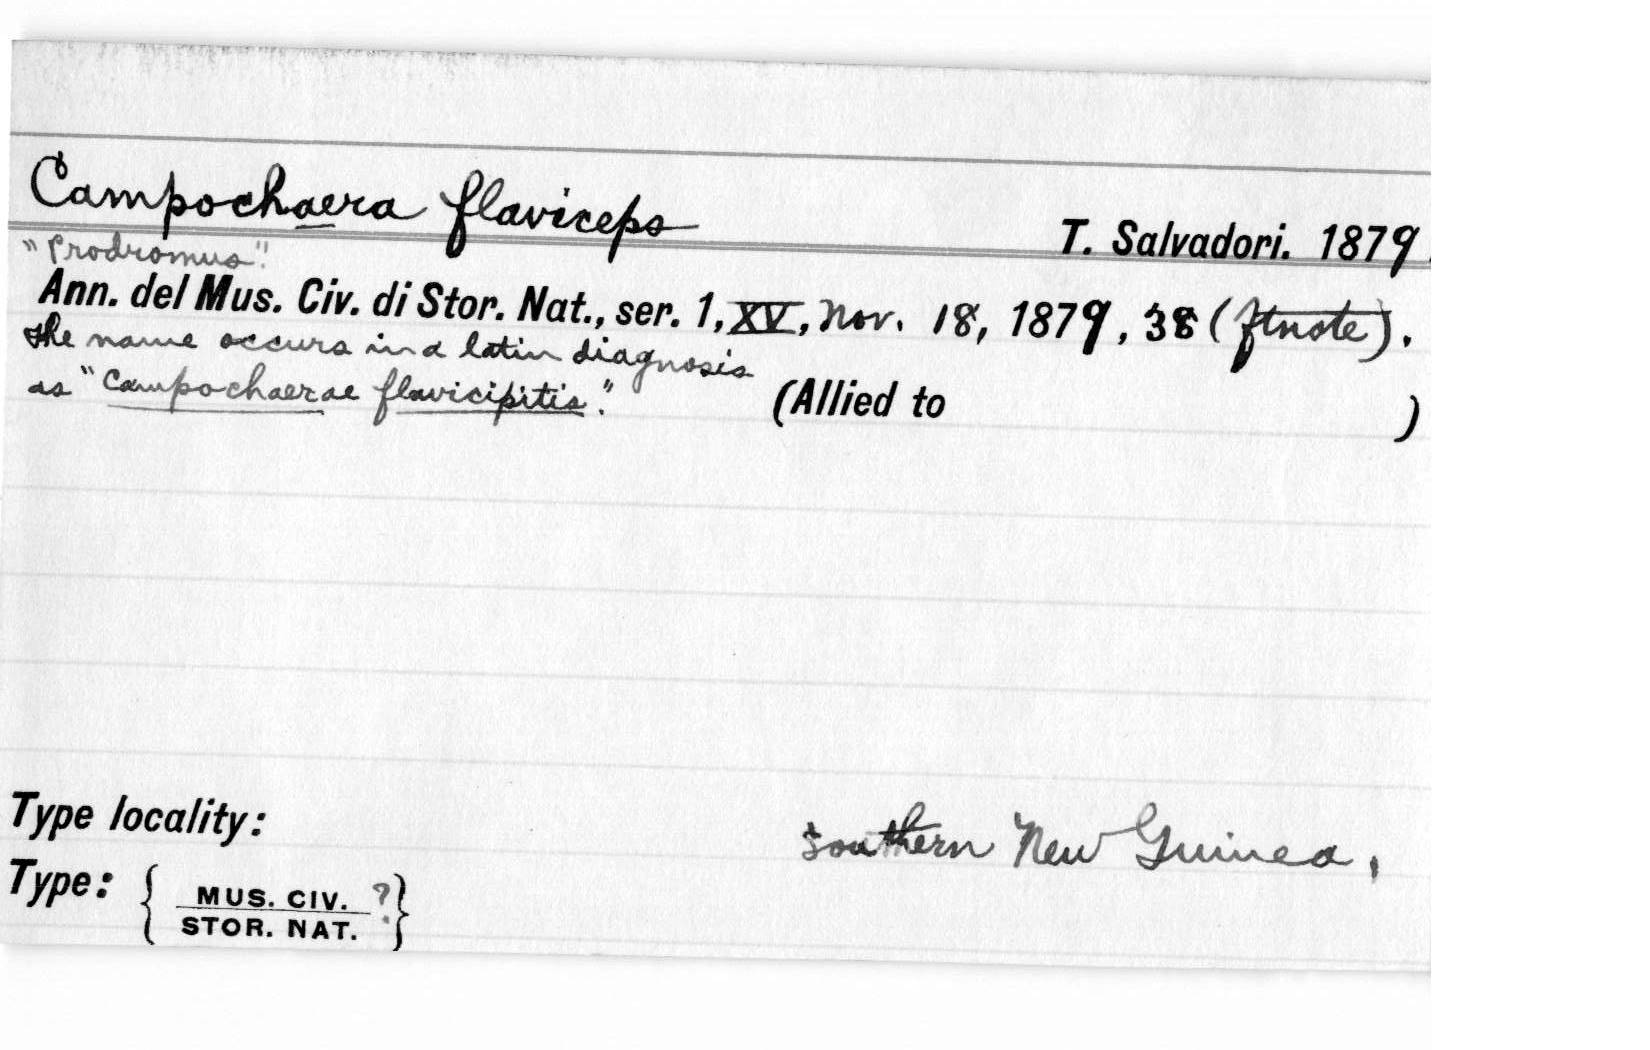 Campochaera flaviceps
T. Salvadori. 1879.
"Prodromus".
Ann. del Mus. Civ. di Stor. Nat., ser. 1, XV, Nov. 18, 1879, 38 (ftnote).
The name occurs in a latin diagnosis
as "Campochaerae flavicipitis."
(Allied to )
Type locality: Southern New Guinea.
Type: { MUS. CIV. ? }
STOR. NAT.